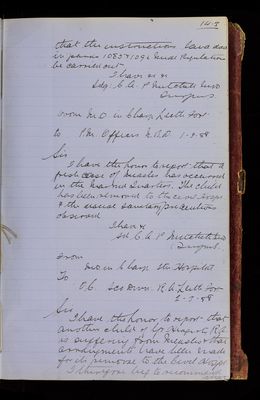 143
that the instructions laid down
in paras 1085 & 1092 Medl Regulations
be carried out
I have &c &c
Sdg. C. A. P. Mitchell M.D
Surgeon
From M.O in Charge Leith Fort
to P.M. Officer N.B.D 1-9-88
Sir
I have the honor to report that a
fresh case of Measles has occurred
in the Married Quarters. The child
has been removed to the Civil Hospl
& the usual Sanitary precautions
observed
I have &c
Sd C. A. P. Mitchell M.D
Surgeon
From
M.O in Charge Stn Hospital
To
O.C. Scottish Divn. R.A. Leith Fort
2-9-88
Sir
I have the honor to report that
another child of Gr R.A.
is suffering from Measles & that
arrangements have been made
for its removal to the Civil Hospl
I therefore beg to recommend